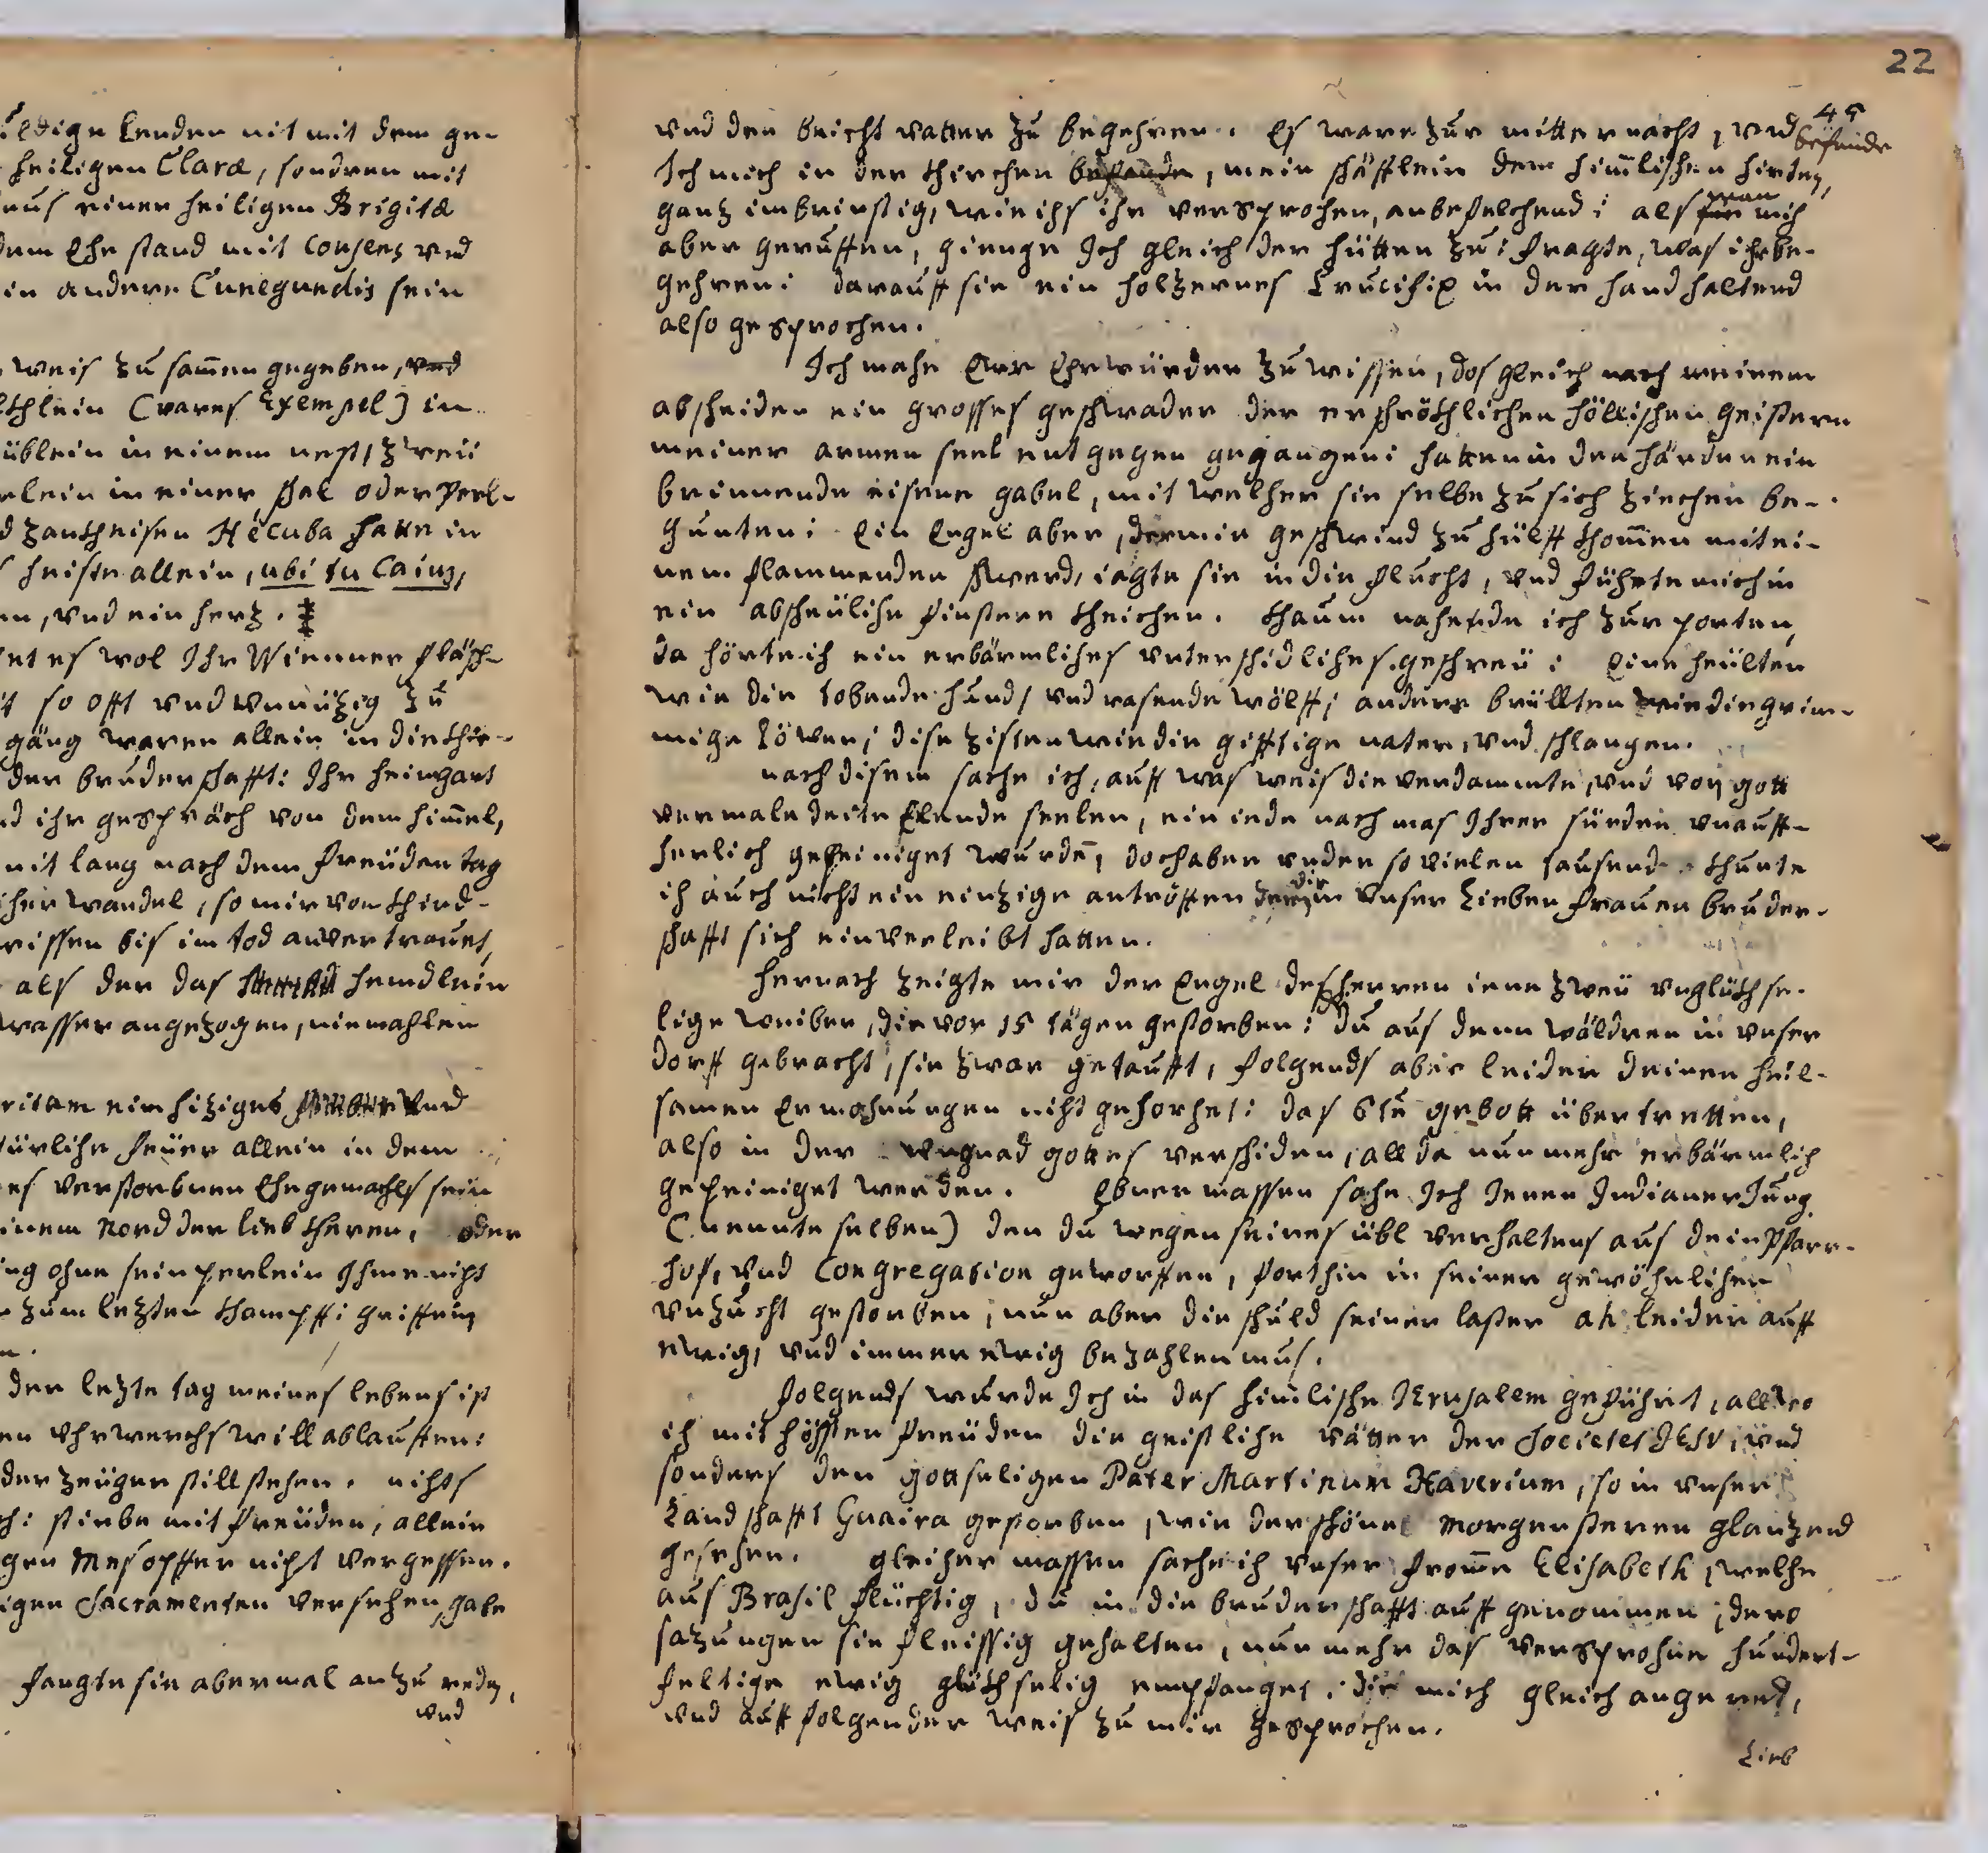 ein heiligen Claræ, sondren mit
aus einer heiligen Brigitæ
dem Ehe stand mit Consens vnd
ein andere Cunegundis sein
weis zu sam̄en gegeben, vnd
(rares Exempel) in
üblein in einem nest, zweÿ
rlein in einer schal oder Perl-
d zanckheisen Hecuba hatte in
heiste allein, ubi tu Caius,
en, vnd ein herz.
et es wol Ihr Wienner
it so offt vnd vnnüzig zu
gäng waren allein in die
der bruderschafft: Ihr heimgart
nd ihr gespräch von dem him̄el,
nit lang nach dem freüden tag
cher wandel, so mir von kind-
wissen bis im tod anvertrauet,
als der das hemdlein
wasser angezogen, niemahlen
ritam ein hiziges vnd
türliche feüer allein in dem
es verstorbnen Ehegemachls sein
einem Nord der lieb kheren, oder
ing ohne sein perlein Ihme nicht
zum lezten khampff: griffen
n.
der lezte tag meines lebens ist
en vhrwerchs will ablauffen:
der zeüger still stehen. nichts
ch: stirbe mit freüden, allein
gen Mesopffer nicht vergessen.
igen Sacramenten versehen, habe
fangte sie abermal an zu reden,
vnd
22
45
vnd den beicht vatter zu begehren. Es ware zur mitternacht, vnd befunde
Ich mich in der khirchen befunde, mein schäfflein dem him̄lischen hirten,
ganz inbrinstig, wie ichs ihr versprochen, anbefelchend: als man mich
aber geruffen, gienge Ich gleich der hütten zu: fragte, was ihr be-
gehren: darauff sie ein holzernes Crucifix in der hand haltend
also gesprochen.
Ich mache Ewr Ehrwürden zu wissen, das gleich nach meinem
abscheiden ein grosses geschwader der erschröckhlichen höllischen geistern
meiner armen seel entgegen gegangen: hatten in den händen ein
brinnende eisene gabel, mit welcher sie selbe zu sich ziechen be-
gunten: Ein Engel aber, der mir geschwind zu hülff khom̄en mit ei-
nem flammenden schwerd, iagte sie in die flucht, vnd führte mich in
ein abscheüliche finstere theichen. khaum nahende ich zur porten,
da hörte ich ein erbärmliches vnterschidliches geschreü: Eine heülten
wie die tobende hund, vnd rasende wölff, andere brüllten wie die grim-
mige Löwen, dise zisten wie die gifftige nater, vnd schlangen.
nach disem sache ich, auff was weis die verdammte, vnd von gott
vermaledeite Elende seelen, ein iede nach mas Ihrer sünden vnauff-
herlich gepeiniget wurdē, doch aber vnder so vielen tausend khunte
ich auch nicht ein einzige antröffen die in vnser Lieben frauen bruder-
schafft sich einverleibt hatten.
hernach zeigte mir der Engel des herren iene zweü vnglückhse-
lige weiber, die vor 15 tägen gestorben: du aus denn wäldren in vnser
dorff gebracht, sie zwar getaufft, folgends aber leider deinen heil-
samen Ermahnungen nicht gehorchet: das 6te gebott übertretten,
also in der vngnad gottes verschiden, allda nunmehr erbärmlich
gepeiniget werden. Ebner massen sahe Ich Ienen Indianer Jung
(nennte selben) den du wegen seines übl verhaltens aus dein Pfarr-
hof, vnd Congregation geworffen, forthin in seiner gewöhnlichen
vnzucht gestorben, nun aber die schuld seiner laster ah leider auff
ewig, vnd immer ewig bezahlen mus.
folgends wurde Ich in das him̄lische Ierusalem geführt, allwo
ich mit höchsten freüden die geistliche vätter der Societet IESV, vnd
sonders den gottseligen Pater Martinum Xaverium, so in vnser
Landschafft Guaira gestorben, wie der schöne morgensteren glanzend
gesehen. gleicher massen sache ich vnser from̄e Elisabeth, welche
aus Brasil flüchtig, du in die bruderschafft auff genommen, dero
sazungen sie fleissig gehalten, nunmehr das versprochne hundert-
feltige ewig glückhselig empfanget: die mich gleich angeredt,
vnd auff folgender weis zu mir gesprochen.
Lieb